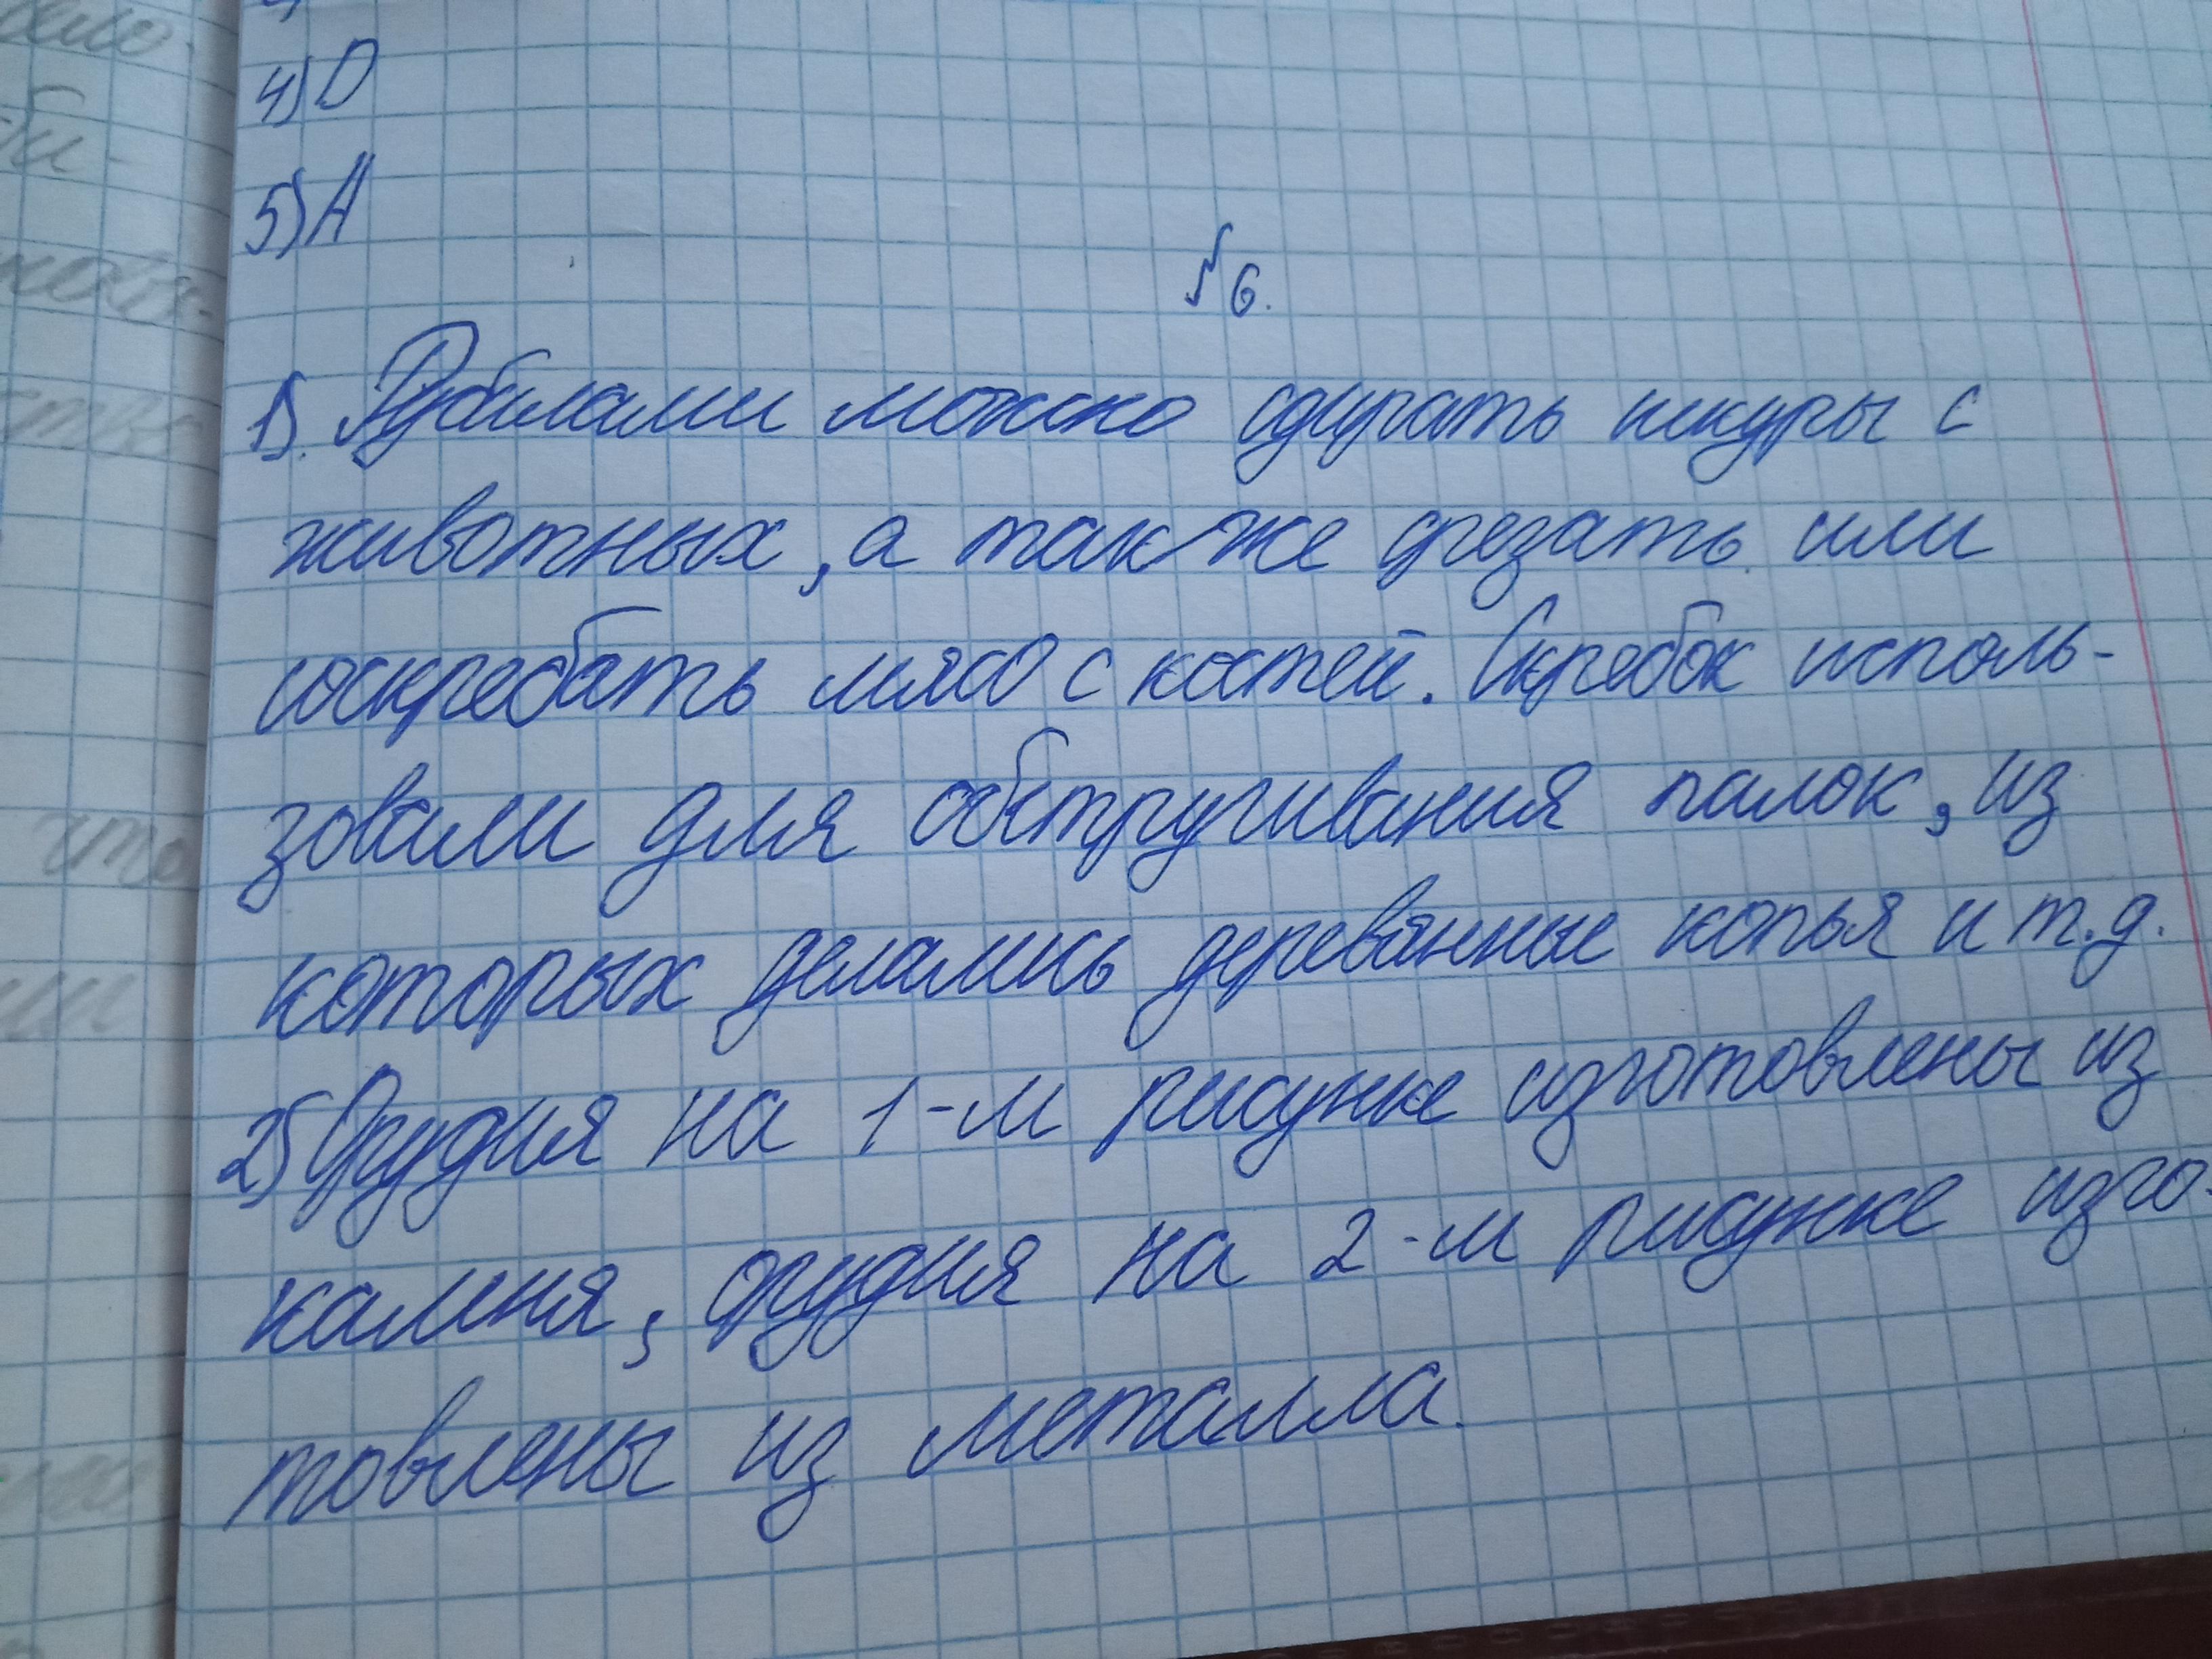 4) D
5) А
№6.
1). Рубилами можно сдирать шкуры с
животных, а также срезать или
соскребать мясо с костей. Скребок исполь-
зовали для обстругивания палок, из
которых делались деревянные копья и т.д.
2) Орудия на 1-м рисунке изготовлены из
камня, орудия на 2-м рисунке изго-
товлены из металла.